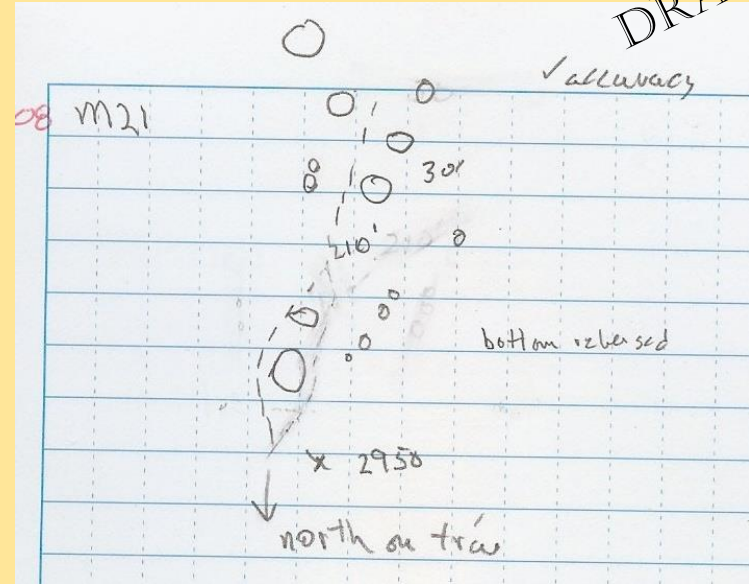 DRA
✓accuracy
08 M21
30'
210'
bottom released
x 2950
north on